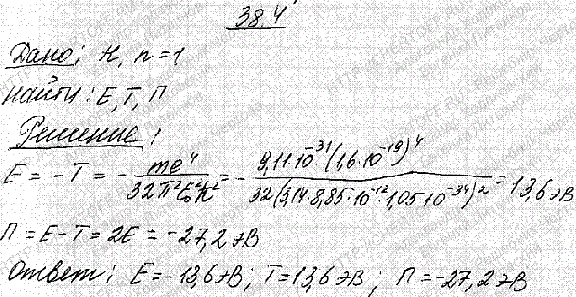 38.4
Дано: H, n=1
Найти: E, T, П
Решение:
E = -T = - me⁴/32π²ε₀²ħ² = - 9,11·10⁻³¹(1,6·10⁻¹⁹)⁴/32(3,14·8,85·10⁻¹²·1,05·10⁻³⁴)² = -13,6эВ
П = E-T = 2E = -27,2эВ
Ответ: E = -13,6эВ; T=13,6эВ; П=-27,2эВ